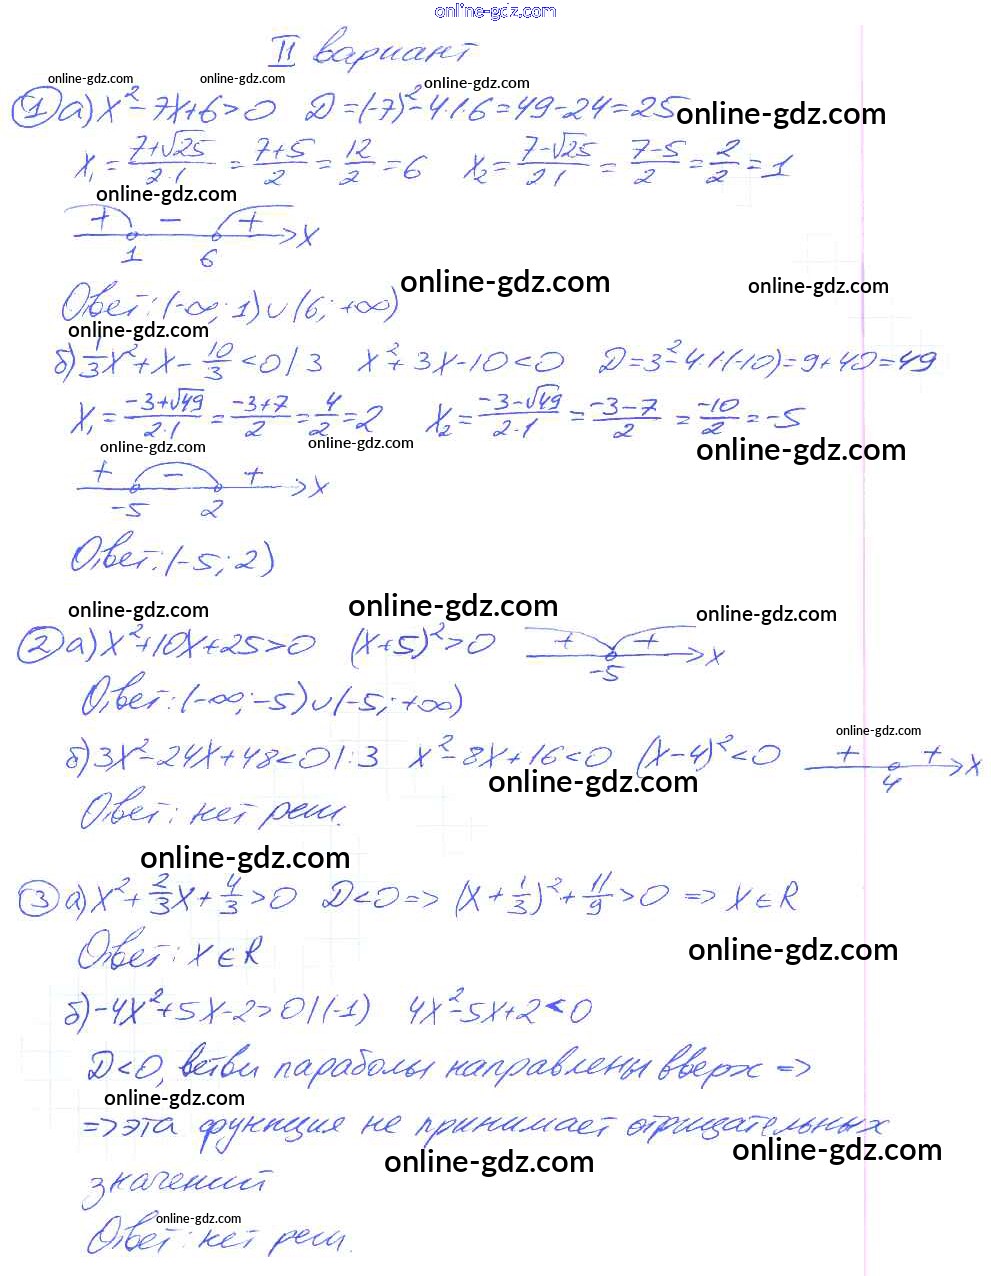 online-gdz.com
II вариант
online-gdz.com online-gdz.com online-gdz.com
① а) x² - 7x + 6 > 0 D = (-7)² - 4·1·6 = 49 - 24 = 25 online-gdz.com
x₁ = (7+√25)/(2·1) = (7+5)/2 = 12/2 = 6 x₂ = (7-√25)/(2·1) = (7-5)/2 = 2/2 = 1
online-gdz.com
+ - + x
1 6
online-gdz.com online-gdz.com
Ответ: (-∞; 1) ∪ (6; +∞)
online-gdz.com
б) 1/3 x² + x - 10/3 < 0 | 3 x² + 3x - 10 < 0 D = 3² - 4·1·(-10) = 9 + 40 = 49
x₁ = (-3+√49)/(2·1) = (-3+7)/2 = 4/2 = 2 x₂ = (-3-√49)/(2·1) = (-3-7)/2 = -10/2 = -5
online-gdz.com online-gdz.com online-gdz.com
+ - + x
-5 2
Ответ: (-5; 2)
online-gdz.com online-gdz.com online-gdz.com
② а) x² + 10x + 25 > 0 (x+5)² > 0 + + x
-5
Ответ: (-∞; -5) ∪ (-5; +∞)
online-gdz.com
б) 3x² - 24x + 48 < 0 | :3 x² - 8x + 16 < 0 (x-4)² < 0 + + x
4
online-gdz.com
Ответ: нет реш.
online-gdz.com
③ а) x² + 2/3 x + 4/3 > 0 D < 0 => (x + 1/3)² + 11/9 > 0 => x ∈ R
Ответ: x ∈ R
online-gdz.com
б) -4x² + 5x - 2 > 0 | (-1) 4x² - 5x + 2 < 0
D < 0, ветви параболы направлены вверх =>
online-gdz.com
=> эта функция не принимает отрицательных
online-gdz.com online-gdz.com
значений
online-gdz.com
Ответ: нет реш.